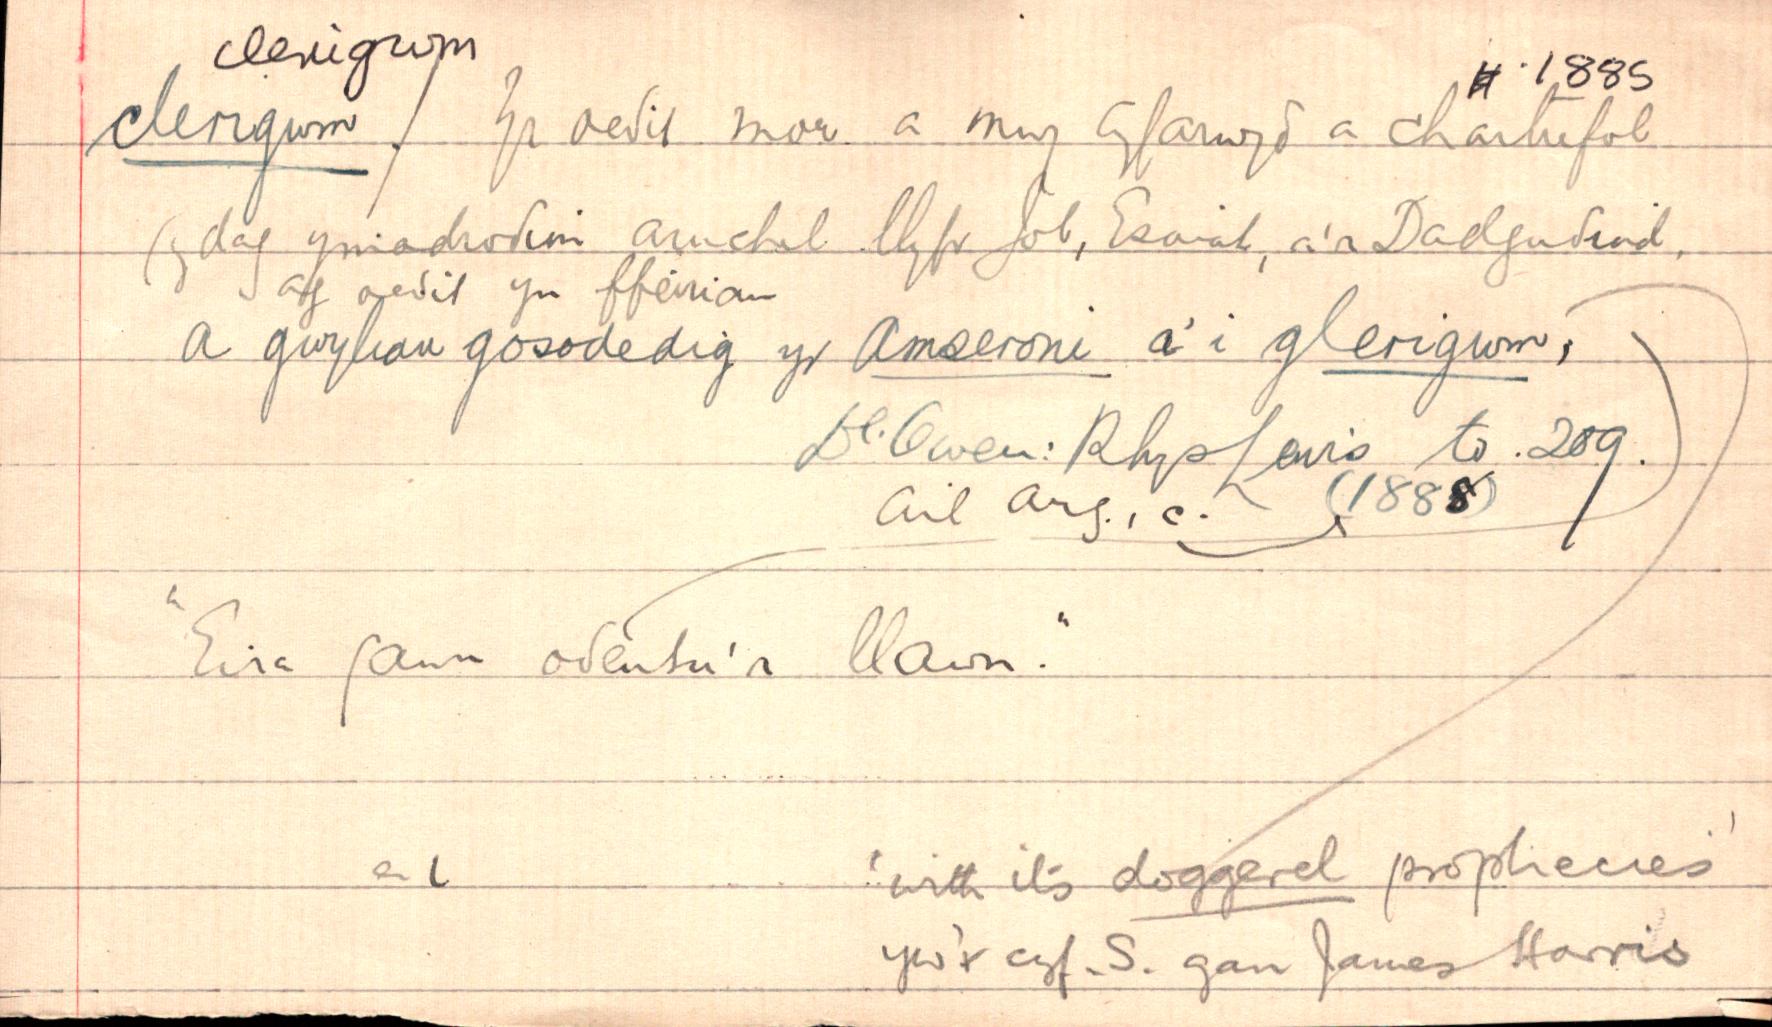 clerigwm
# 1885
clerigwm. / Yr oeđit mor a mwy cyfarwyđ a chartrefol
gydag ymadrođion aruchel llyfr Job, Esaiah, a'r Dadguđiad,
ag oeđit yn ffeiriau
a gwyliau gosodedig yr Amseroni a'i glerigwm,
Dl. Owen: Rhys Lewis td. 209.
ail arg., c. (1888)
"Eira gawn ođeutu'r llawn."
en l
'with its doggerel prophecies'
yw'r cyf. S. gan James Harris